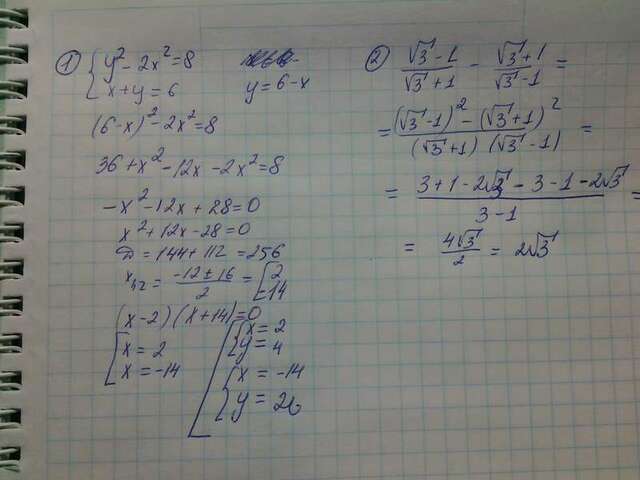 ① { y² - 2x² = 8
x + y = 6     y = 6 - x
(6-x)² - 2x² = 8
36 + x² - 12x - 2x² = 8
-x² - 12x + 28 = 0
x² + 12x - 28 = 0
D = 144 + 112 = 256
x₁,₂ = (-12 ± 16)/2 = [ 2
-14
(x-2)(x+14) = 0
[ x = 2
x = -14
[ { x = 2
y = 4
{ x = -14
y = 20
② (√3 - 1)/(√3 + 1) - (√3 + 1)/(√3 - 1) =
= ((√3 - 1)² - (√3 + 1)²)/((√3 + 1)(√3 - 1)) =
= (3 + 1 - 2√3 - 3 - 1 - 2√3)/(3 - 1) =
= 4√3/2 = 2√3